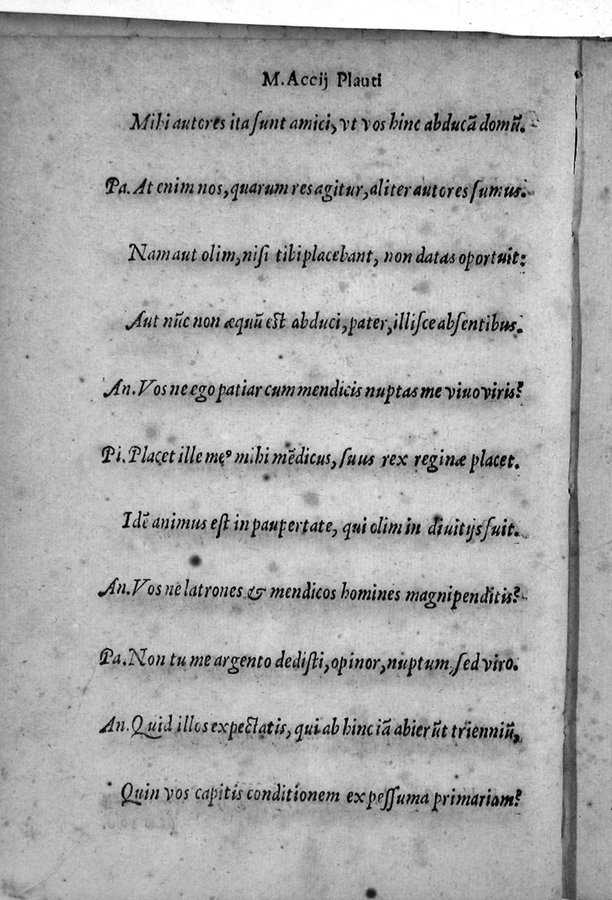 M. Accij Plauti
Mihi autores ita sunt amici, vt vos hinc abducā domū.
Pa. At enim nos, quarum res agitur, aliter autores sumus.
Nam aut olim, nisi tibi placebant, non datas oportuit:
Aut nūc non æquū est abduci, pater, illisce absentibus.
An. Vos ne ego patiar cum mendicis nuptas me viuo viris?
Pi. Placet ille meꝰ mihi mēdicus, suus rex reginæ placet.
Idē animus est in paupertate, qui olim in diuitijs fuit.
An. Vos ne latrones & mendicos homines magni penditis?
Pa. Non tu me argento dedisti, opinor, nuptum, sed viro.
An. Quid illos expectatis, qui ab hinc iā abierūt trienniū,
Quin vos capitis conditionem ex pessuma primariam?